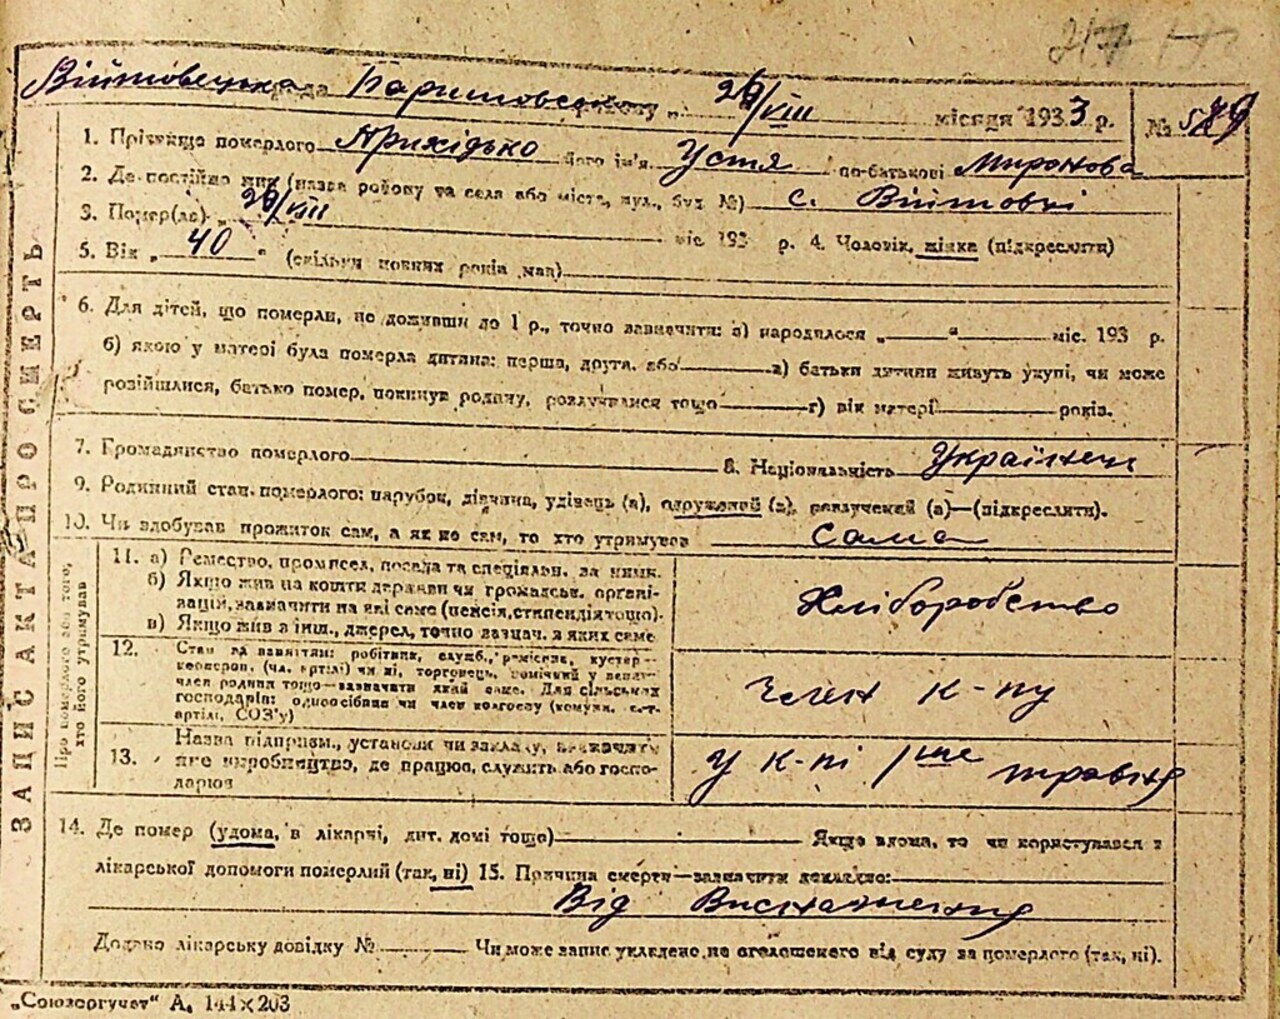 Війтовецька рада Баришовського району „ 29/VIII місяця 1933 р. №
1. Прізвище померлого Прихідько його ім'я Устя по-батькові Миронова
2. Де постійно жив (назва району та села або міста, вул., буд №) с. Війтовці
3. Помер(ла) „ 29/VIII міс. 193 р. 4. Чоловік, жінка (підкреслити)
5. Вік „ 40 " (скільки повних років мав)
6. Для дітей, що померли, не доживши до 1 р., точно зазначити: а) народилося „ " міс. 193 р.
б) якою у матері була померла дитина: перша, друга, або в) батьки дитини живуть укупі, чи може
розійшлися, батько помер, покинув родину, розлучилися тощо г) вік матері років.
7. Громадянство померлого 8. Національність Українець
9. Родинний стан померлого: парубок, дівчина, удівець (а), одружений (а), розлучений (а)—(підкреслити).
10. Чи здобував прожиток сам, а як не сам, то хто утримував сама
ЗАПИС АКТА ПРО СМЕРТЬ
Про померлого або того,
хто його утримував
11. а) Ремество, промисел, посада та спеціяльн. за ними.
б) Якщо жив на кошти держави чи громадськ. органі-
зацій, зазначити на які саме (пенсія, стипендія тощо).
в) Якщо жив з інш., джерел, точно зазнач. з яких саме
Хліборобство
12. Стан за заняттям: робітник, служб., ремісник, кустар—
кооперов. (чл. артілі) чи ні, торговець,
член родини тощо—зазначати який саме. Для сільських
господарів: одноосібник чи член колгоспу (комуни,
артілі, СОЗ'у)
член к-пу
13. Назва підприєм., установи чи закладу, зазначити
яке виробництво, де працює, служить або госпо-
дарює
у к-пі 1ше травня
14. Де помер (удома, в лікарні, дит. домі тощо) Якщо вдома, то чи користувався з
лікарської допомоги померлий (так, ні) 15. Причина смерти—зазначити докладно:
Від Виснаження
Додано лікарську довідку № Чи може запис укладено, не оголошеного від суду за померлого (так, ні).
„Союзоргучет“ А. 144×203